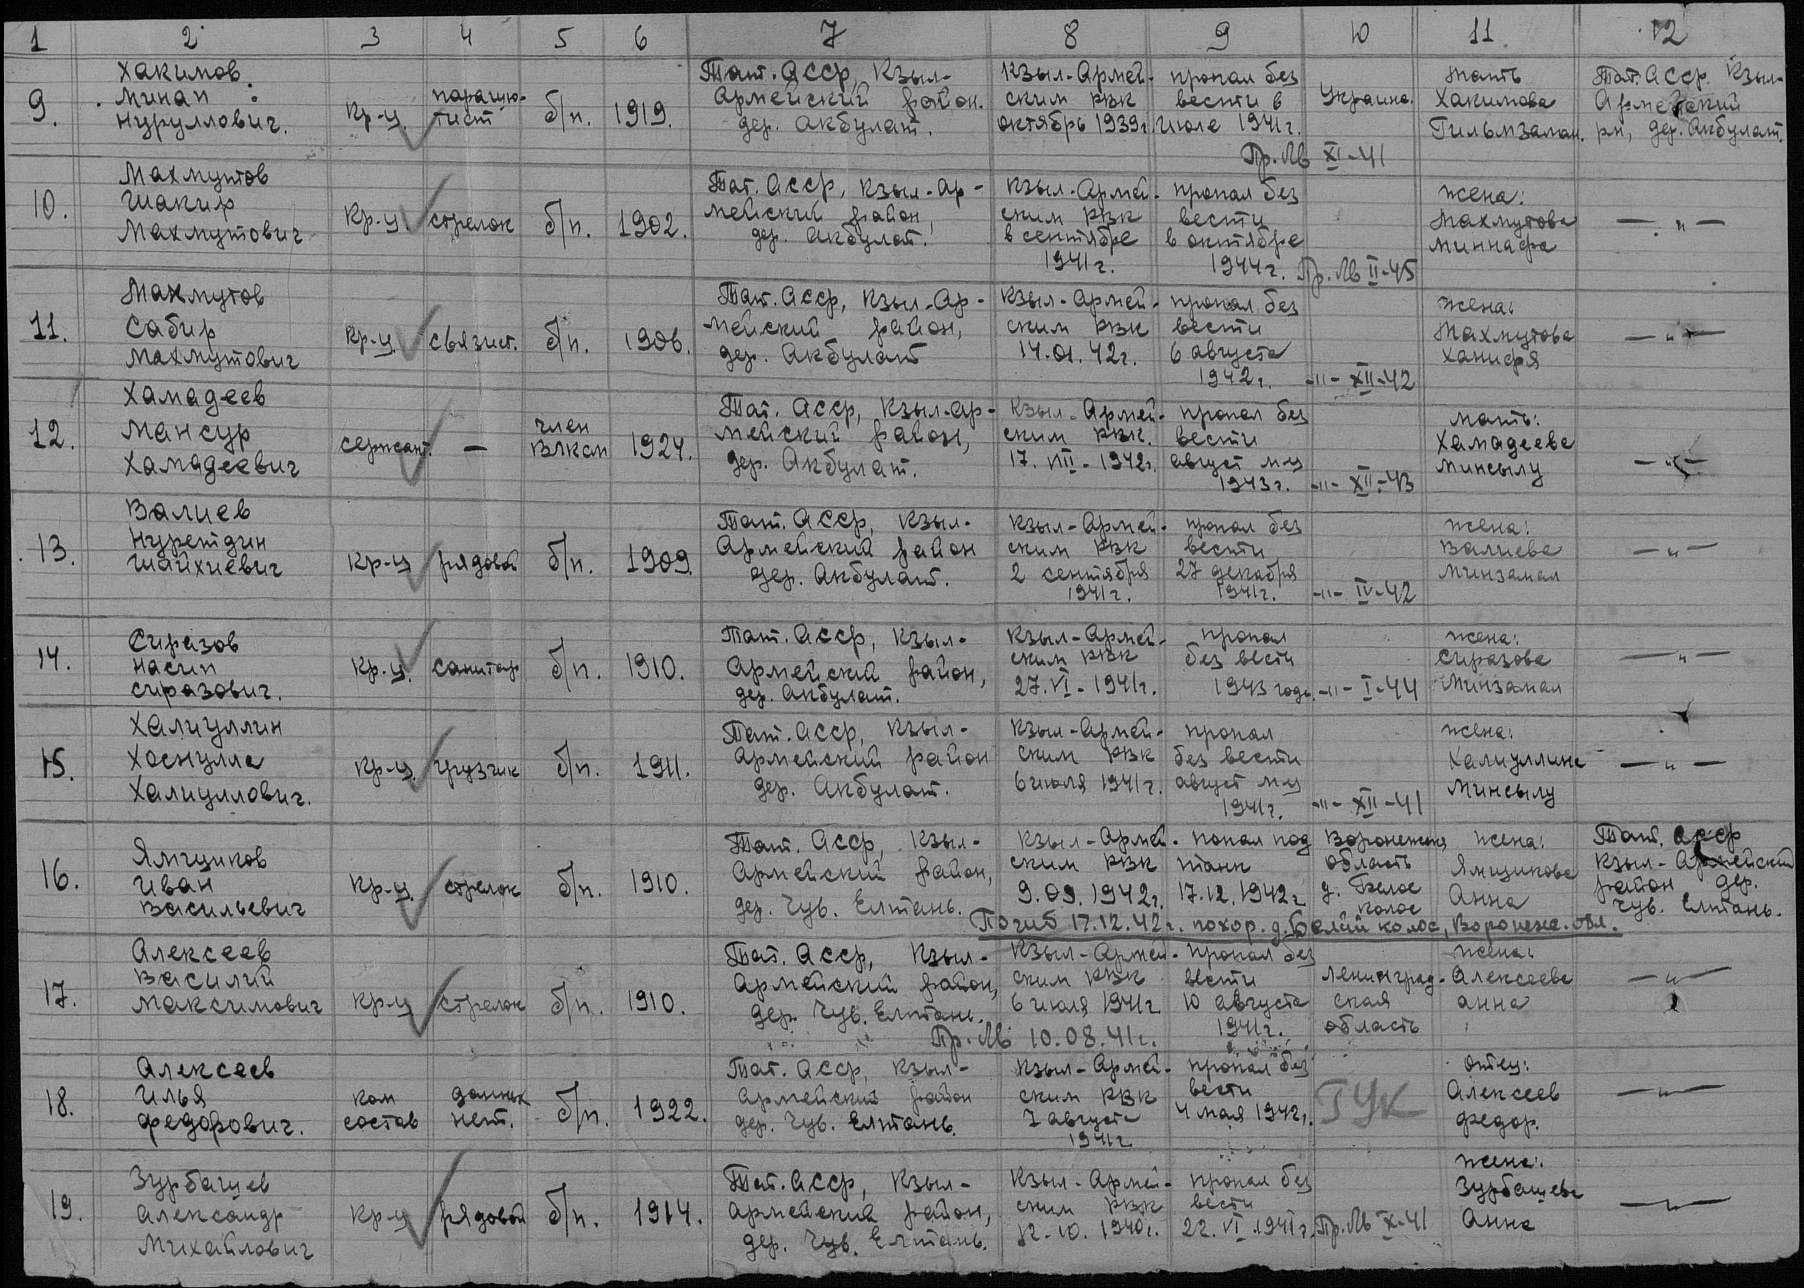 1 2 3 4 5 6 7 8 9 10 11 12
9. Хакимов Минап Нуруллович. Кр-ц парашю-тист б/п. 1919. Тат. АССР, Кзыл-Армейский район. дер. Акбулат. Кзыл-Армей-ским РВК октябрь 1939г. пропал без вести в июле 1941г. Украина. мать Хакимова Гильмзаман. Тат. АССР Кзыл-Армейский рн, дер. Акбулат.
Пр. Мв XI-41
10. Махмутов Шакир Махмутович Кр-ц стрелок б/п. 1902. Тат. АССР, Кзыл-Ар-мейский район, дер. Акбулат. Кзыл-Армей-ским РВК в сентябре 1941г. пропал без вести в октябре 1944г. Пр. Мв II-45 жена: Махмутова Миннафа —"—
11. Махмутов Сабир Махмутович Кр-ц связист. б/п. 1906. Тат. АССР, Кзыл-Ар-мейский район, дер. Акбулат Кзыл-Армей-ским РВК 14.01.42г. пропал без вести 6 августа 1942г. -"- XII-42 жена: Махмутова Ханифя —"—
12. Хамадеев Мансур Хамадеевич сержант. — член ВЛКСМ 1924. Тат. АССР, Кзыл-Ар-мейский район, дер. Акбулат. Кзыл-Армей-ским РВК. 17.VIII-1942г. пропал без вести август м-ц 1943г. -"- XII-43 мать: Хамадеева Минсылу —"—
13. Валиев Нуретдин Шайхиевич Кр-ц рядовой б/п. 1909. Тат. АССР, Кзыл-Армейский район дер. Акбулат. Кзыл-Армей-ским РВК 2 сентября 1941г. пропал без вести 27 декабря 1941г. -"- IV-42 жена: Валиева Минзамал —"—
14. Сиразов Насип Сиразович. Кр-ц. санитар б/п. 1910. Тат. АССР, Кзыл-Армейский район, дер. Акбулат. Кзыл-Армей-ским РВК 27.VI-1941г. пропал без вести 1943 году. -"- I-44 жена: Сиразова Минзамал —"—
15. Халиуллин Хоснулла Халиуллович. Кр-ц грузчик б/п. 1911. Тат. АССР, Кзыл-Армейский район дер. Акбулат. Кзыл-Армей-ским РВК 6 июля 1941г. пропал без вести август м-ц 1941г. -"- XII-41 жена: Халиуллина Минсылу —"—
16. Ямщиков Иван Васильевич Кр-ц стрелок б/п. 1910. Тат. АССР, Кзыл-Армейский район, дер. Чув. Елтань. Кзыл-Армей-ским РВК 9.09.1942г. попал под танк 17.12.1942г Воронежская область д. Белое колос жена: Ямщикова Анна Тат. АССР Кзыл-Армейский район дер. Чув. Елтань.
Погиб 17.12.42г. похор. д. Белый колос, Воронеж. обл.
17. Алексеев Василий Максимович Кр-ц стрелок б/п. 1910. Тат. АССР, Кзыл-Армейский район, дер. Чув. Елтань. Кзыл-Армей-ским РВК 6 июля 1941г пропал без вести 10 августа 1941г. Ленинград-ская область жена: Алексеева Анна —"—
Пр. Мв 10.08.41г.
18. Алексеев Илья Федорович. ком состав данных нет. б/п. 1922. Тат. АССР, Кзыл-Армейский район дер. Чув. Елтань. Кзыл-Армей-ским РВК 7 августа 1941г пропал без вести 4 мая 1942г. ГУК отец: Алексеев Федор. —"—
19. Зурбашев Александр Михайлович Кр-ц рядовой б/п. 1914. Тат. АССР, Кзыл-Армейский район, дер. Чув. Елтань. Кзыл-Армей-ским РВК 12.10.1940г. пропал без вести 22.VI.1941г. Пр. Мв X-41 жена: Зурбашева Анна —"—